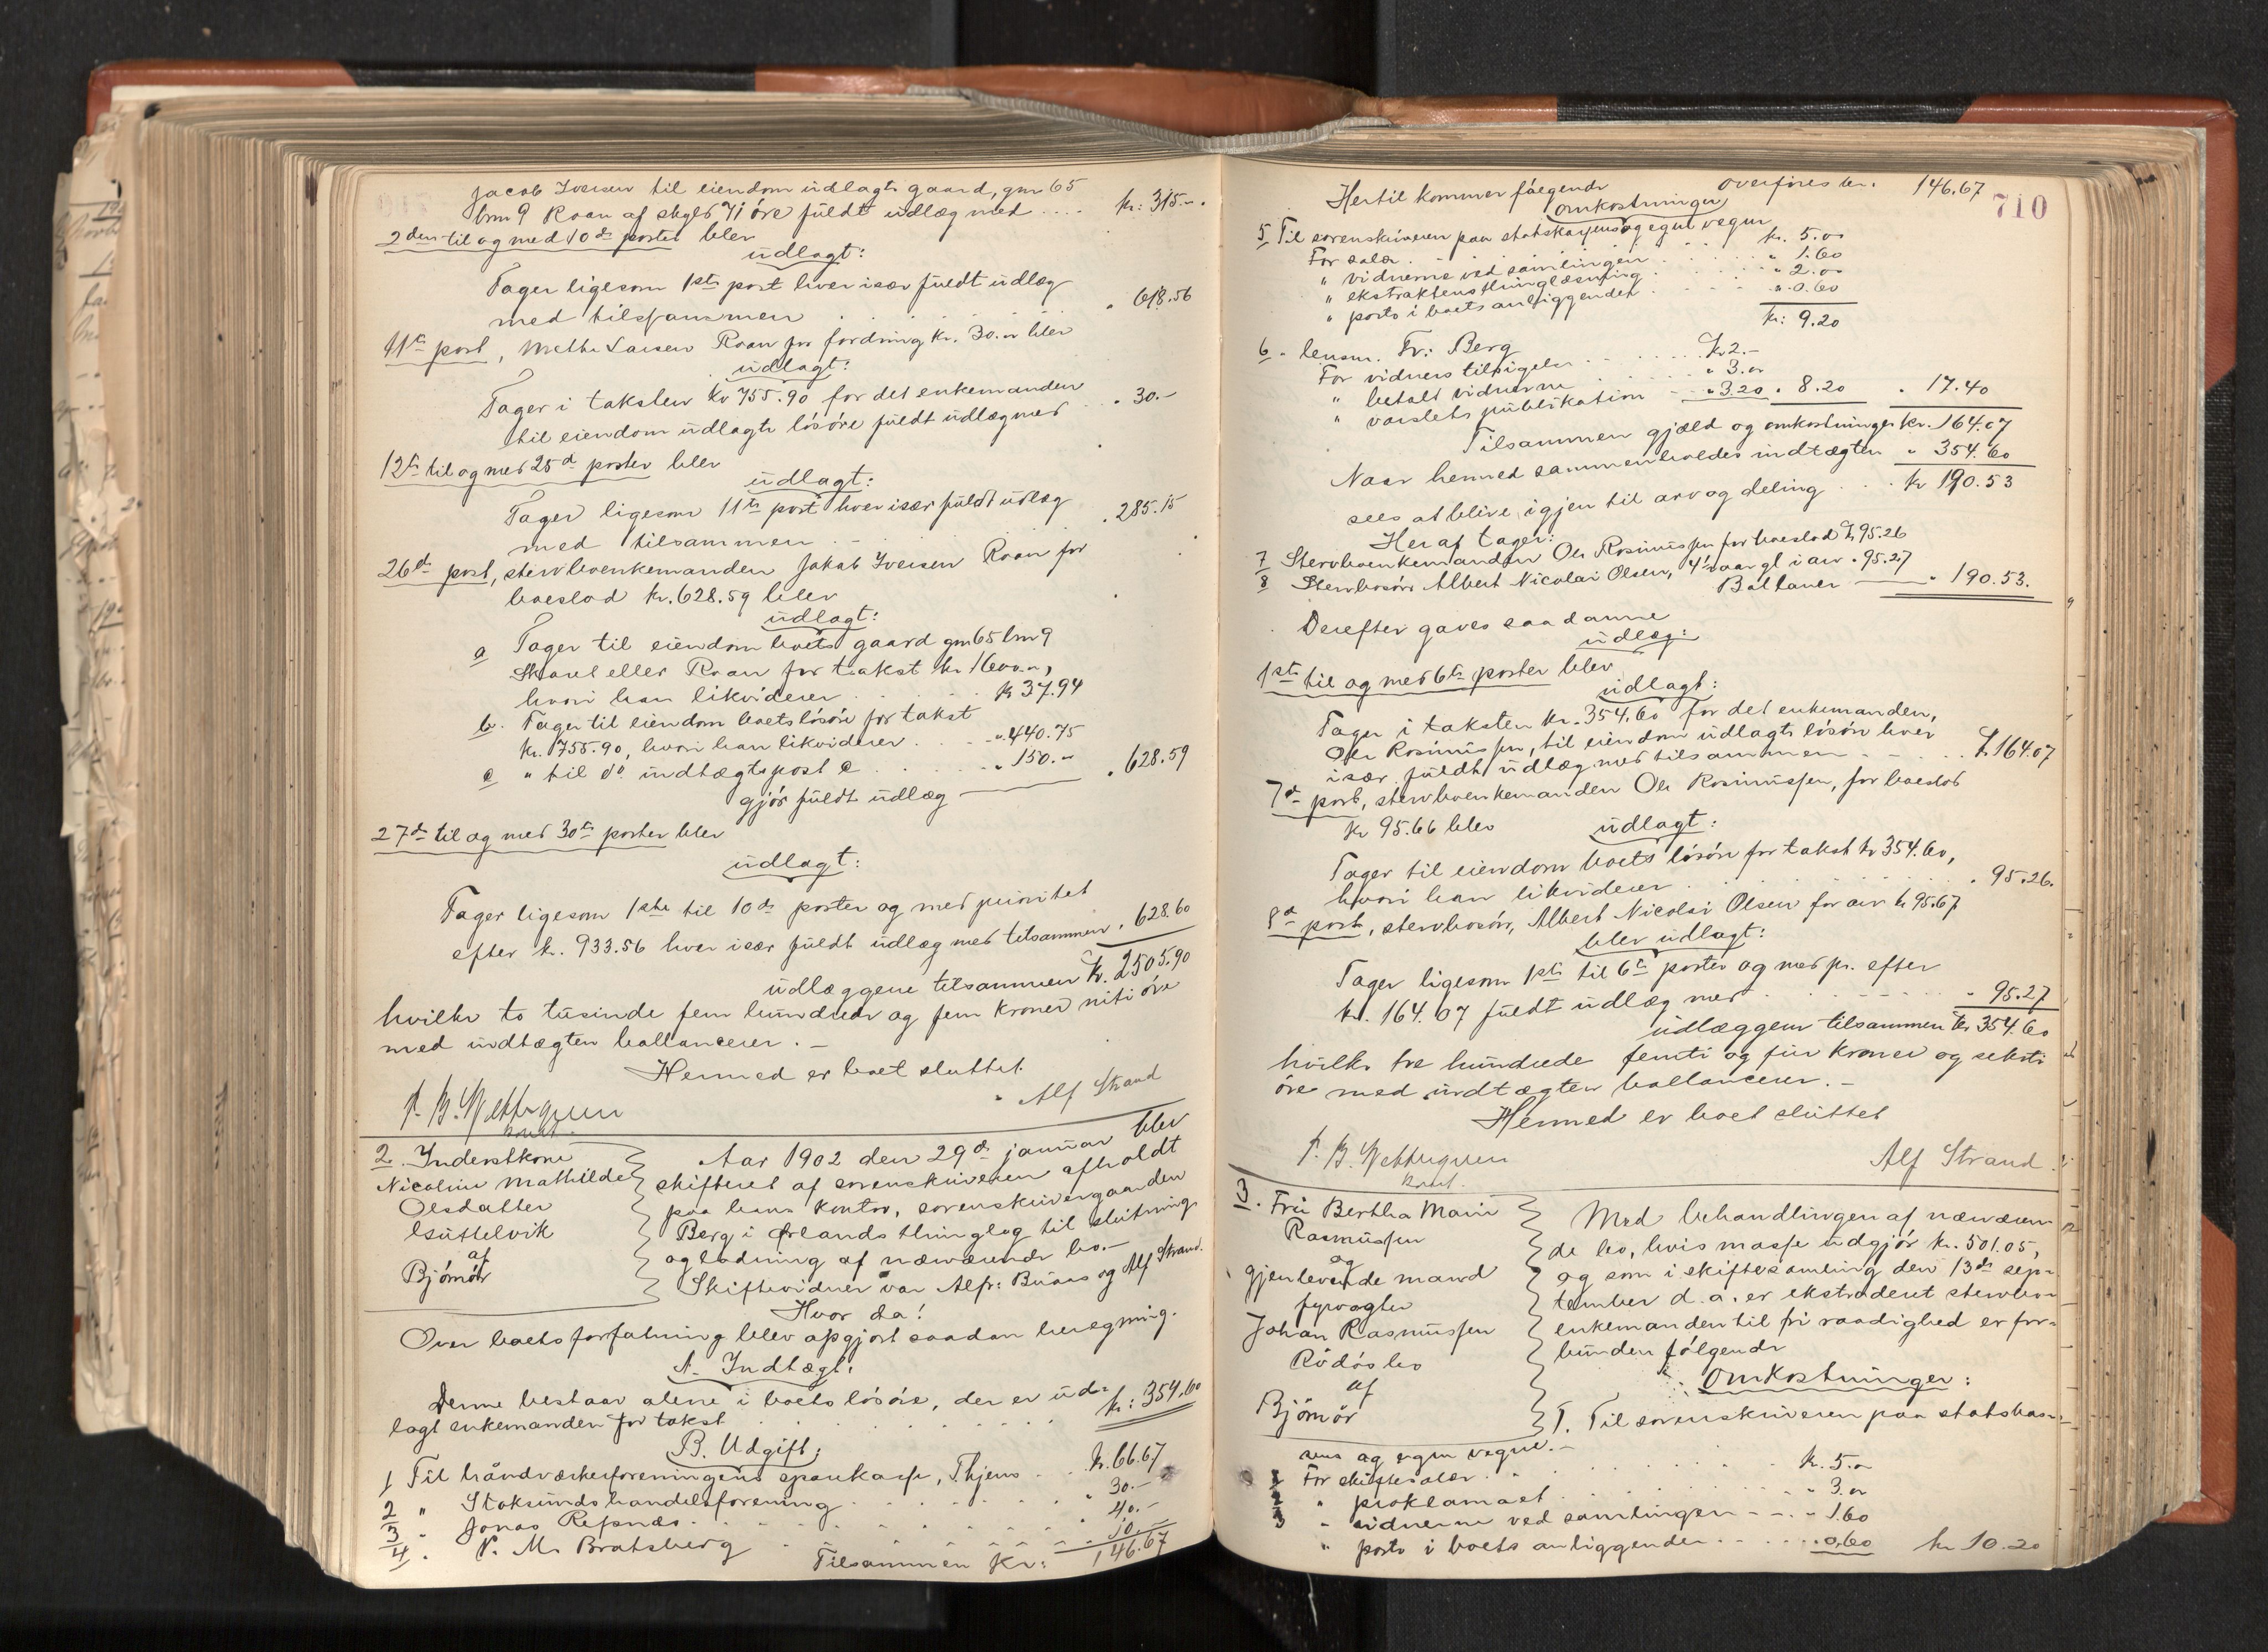 Jacob Iversen til eiendom udlagte gaard, gm 65
brn 9 Roan af skyld 71 øre fuldt udlæg med .... kr: 315.-.
2den til og med 10de poster blev
udlagt:
Tager ligesom 1ste post hver især fuldt udlæg
med tilsammen . . . . . . " 618.56
11te post, Mette Larsen Roan for fordring kr. 30.- blev
udlagt:
Tager i taksten kr 755.90 for det enkemanden
til eiendom udlagte løsøre fuldt udlæg med . " 30.-
12te til og med 25de poster blev
udlagt:
Tager ligesom 11te post hver især fuldt udlæg
med tilsammen . - " 285.15
26de post, stervboenkemanden Jakob Iversen Roan for
boeslod kr. 628.59 blev
udlagt:
a Tager til eiendom boets gaard gm 65 brn 9
eller Roan for takst kr 1600.-,
hvori han likviderer . . . . . kr 37.94
b. Tager til eiendom boets løsøre for takst
kr. 755.90, hvori han likviderer . . . " 440.75
c " til do indtægtspost c . . . . " 150.-
gjør fuldt udlæg — " 628.59
27de til og med 30te poster blev
udlagt:
Tager ligesom 1ste til 10de poster og med prioritet
efter kr. 933.56 hver især fuldt udlæg med tilsammen " 628.60
udlæggene tilsammen kr. 2505.90
hvilke to tusinde fem hundrede og fem kroner niti øre
med indtægten ballancerer. -
Hermed er boet sluttet.
Alf Strand
konst.
2. Inderstkone
Nicoline Mathilde
Olsdatter
af
Bjørnør
Aar 1902 den 29de januar blev
skifteret af sorenskriveren afholdt
paa hans kontor, sorenskrivergaarden
Berg i Ørlands thinglag til slutning
og lodning af nærværende bo.-
Skiftevidner var Alfr: Buaas og Alf Strand.
Hvor da!
Over boets forfatning blev opgjort saadan beregning.
A. Indtægt:
Denne bestaar alene i boets løsøre, der er ud-
lagt enkemanden for takst . . . . . . kr: 354.60
B. Udgift:
1 Til håndværkerforeningens sparekasse, Thjem . . kr. 66.67
2 " Stoksunds handelsforening . . . . . " 30.-
3 " Jonas Refsnæs . . . . . . . " 40.-
4 " N. M. Bratsberg . . . . . . " 10.-
Tilsammen kr: 146.67
710
Hertil kommer følgende overføres kr. 146.67
omkostninger
5 Til sorenskriveren paa statskassens og egne vegne
For salær . . . . . . kr. 5.00
" vidnerne ved samlingen . . . . " 1.60
" ekstraktens thinglæsning . . . " 2.00
" porto i boets anliggender . . . " 0.60
kr: 9.20
6 " lensm. Fr: Berg
For vidners tilsigelse . . . . . kr 2.-
" betalt vidnerne . . . . " 3.00
" varslets publikation - " 3.20 " 8.20 " 17.40
Tilsammen gjæld og omkostninger kr. 164.07
Naar hermed sammenholdes indtægten " 354.60
sees at blive igjen til arv og deling . . . kr 190.53
Heraf tager:
7 Stervboenkemanden Ole Rasmussen for boeslod kr 95.26
8 Stervbosøn Albert Nicolai Olsen, 4½ aar gl i arv " 95.27
Ballancer — " 190.53.
Derefter gaves saadanne
udlæg:
1ste til og med 6te poster blev
udlagt:
Tager i taksten kr. 354.60 for det enkemanden,
Ole Rasmussen, til eiendom udlagte løsøre hver
især fuldt udlæg med tilsammen - - . . kr 164.07
7de post, stervboenkemanden Ole Rasmussen, for boeslod
kr 95.66 blev udlagt:
Tager til eiendom boets løsøre for takst kr 354.60,
hvori han likviderer . . . . . . " 95.26.
8de post, stervbosøn, Albert Nicolai Olsen for arv kr 95.67
blev udlagt:
Tager ligesom 1ste til 6te poster og med pr. efter
kr. 164.07 fuldt udlæg med . . . . . " 95.27
udlæggene tilsammen kr 354.60
hvilke tre hundrede femti og fire kroner og seksti
øre med indtægten ballancerer. -
Hermed er boet sluttet
Alf Strand
konst.
3. Fru Bertha Marie
Rasmussen
og
gjenlevende mand
fyrvogter
Johan Rasmussen
Rødøs bo
af
Bjørnør
Med behandlingen af nærværen-
de bo, hvis masse udgjør kr. 501.05,
og som i skiftesamling den 13de sep-
tember d. a. er ekstraderet stervbo-
enkemanden til fri raadighed er for-
bunden følgende
Omkostninger:
1. Til sorenskriveren paa statskas-
sens og egne vegne. -
1 For skiftesalær . . . . . . . kr. 5.-
2 " proklamaet . . . . . . . " 3.00
3 " vidnerne ved samlingen - - - " 1.60
" porto i boets anliggender . . . . " 0.60 kr 10.20